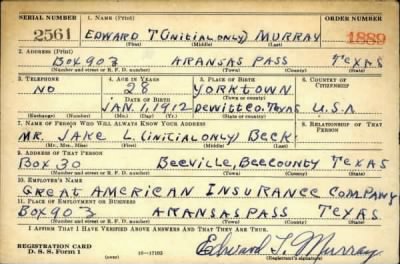 SERIAL NUMBER 1. NAME (Print) ORDER NUMBER
2561 EDWARD T (INITIAL ONLY) MURRAY 1889
(First) (Middle) (Last)
2. ADDRESS (Print)
BOX 903 ARANSAS PASS TEXAS
(Number and street or R. F. D. number) (Town) (County) (State)
3. TELEPHONE 4. AGE IN YEARS 5. PLACE OF BIRTH 6. COUNTRY OF CITIZENSHIP
NO 28 YORKTOWN
DATE OF BIRTH (Town or county)
JAN. 1, 1912 DEWITT CO. TEXAS U.S.A
(Exchange) (Number) (Mo.) (Day) (Yr.) (State or country)
7. NAME OF PERSON WHO WILL ALWAYS KNOW YOUR ADDRESS 8. RELATIONSHIP OF THAT PERSON
MR. JAKE L. (INITIAL ONLY) BECK
(Mr., Mrs., Miss) (First) (Middle) (Last)
9. ADDRESS OF THAT PERSON
BOX 30 BEEVILLE, BEE COUNTY TEXAS
(Number and street or R. F. D. number) (Town) (County) (State)
10. EMPLOYER'S NAME
GREAT AMERICAN INSURANCE COMPANY
11. PLACE OF EMPLOYMENT OR BUSINESS
BOX 903 ARANSAS PASS TEXAS
(Number and street or R. F. D. number) (Town) (County) (State)
I AFFIRM THAT I HAVE VERIFIED ABOVE ANSWERS AND THAT THEY ARE TRUE.
REGISTRATION CARD
D. S. S. Form 1 (over) 16—17105 Edward T. Murray
(Registrant's signature)